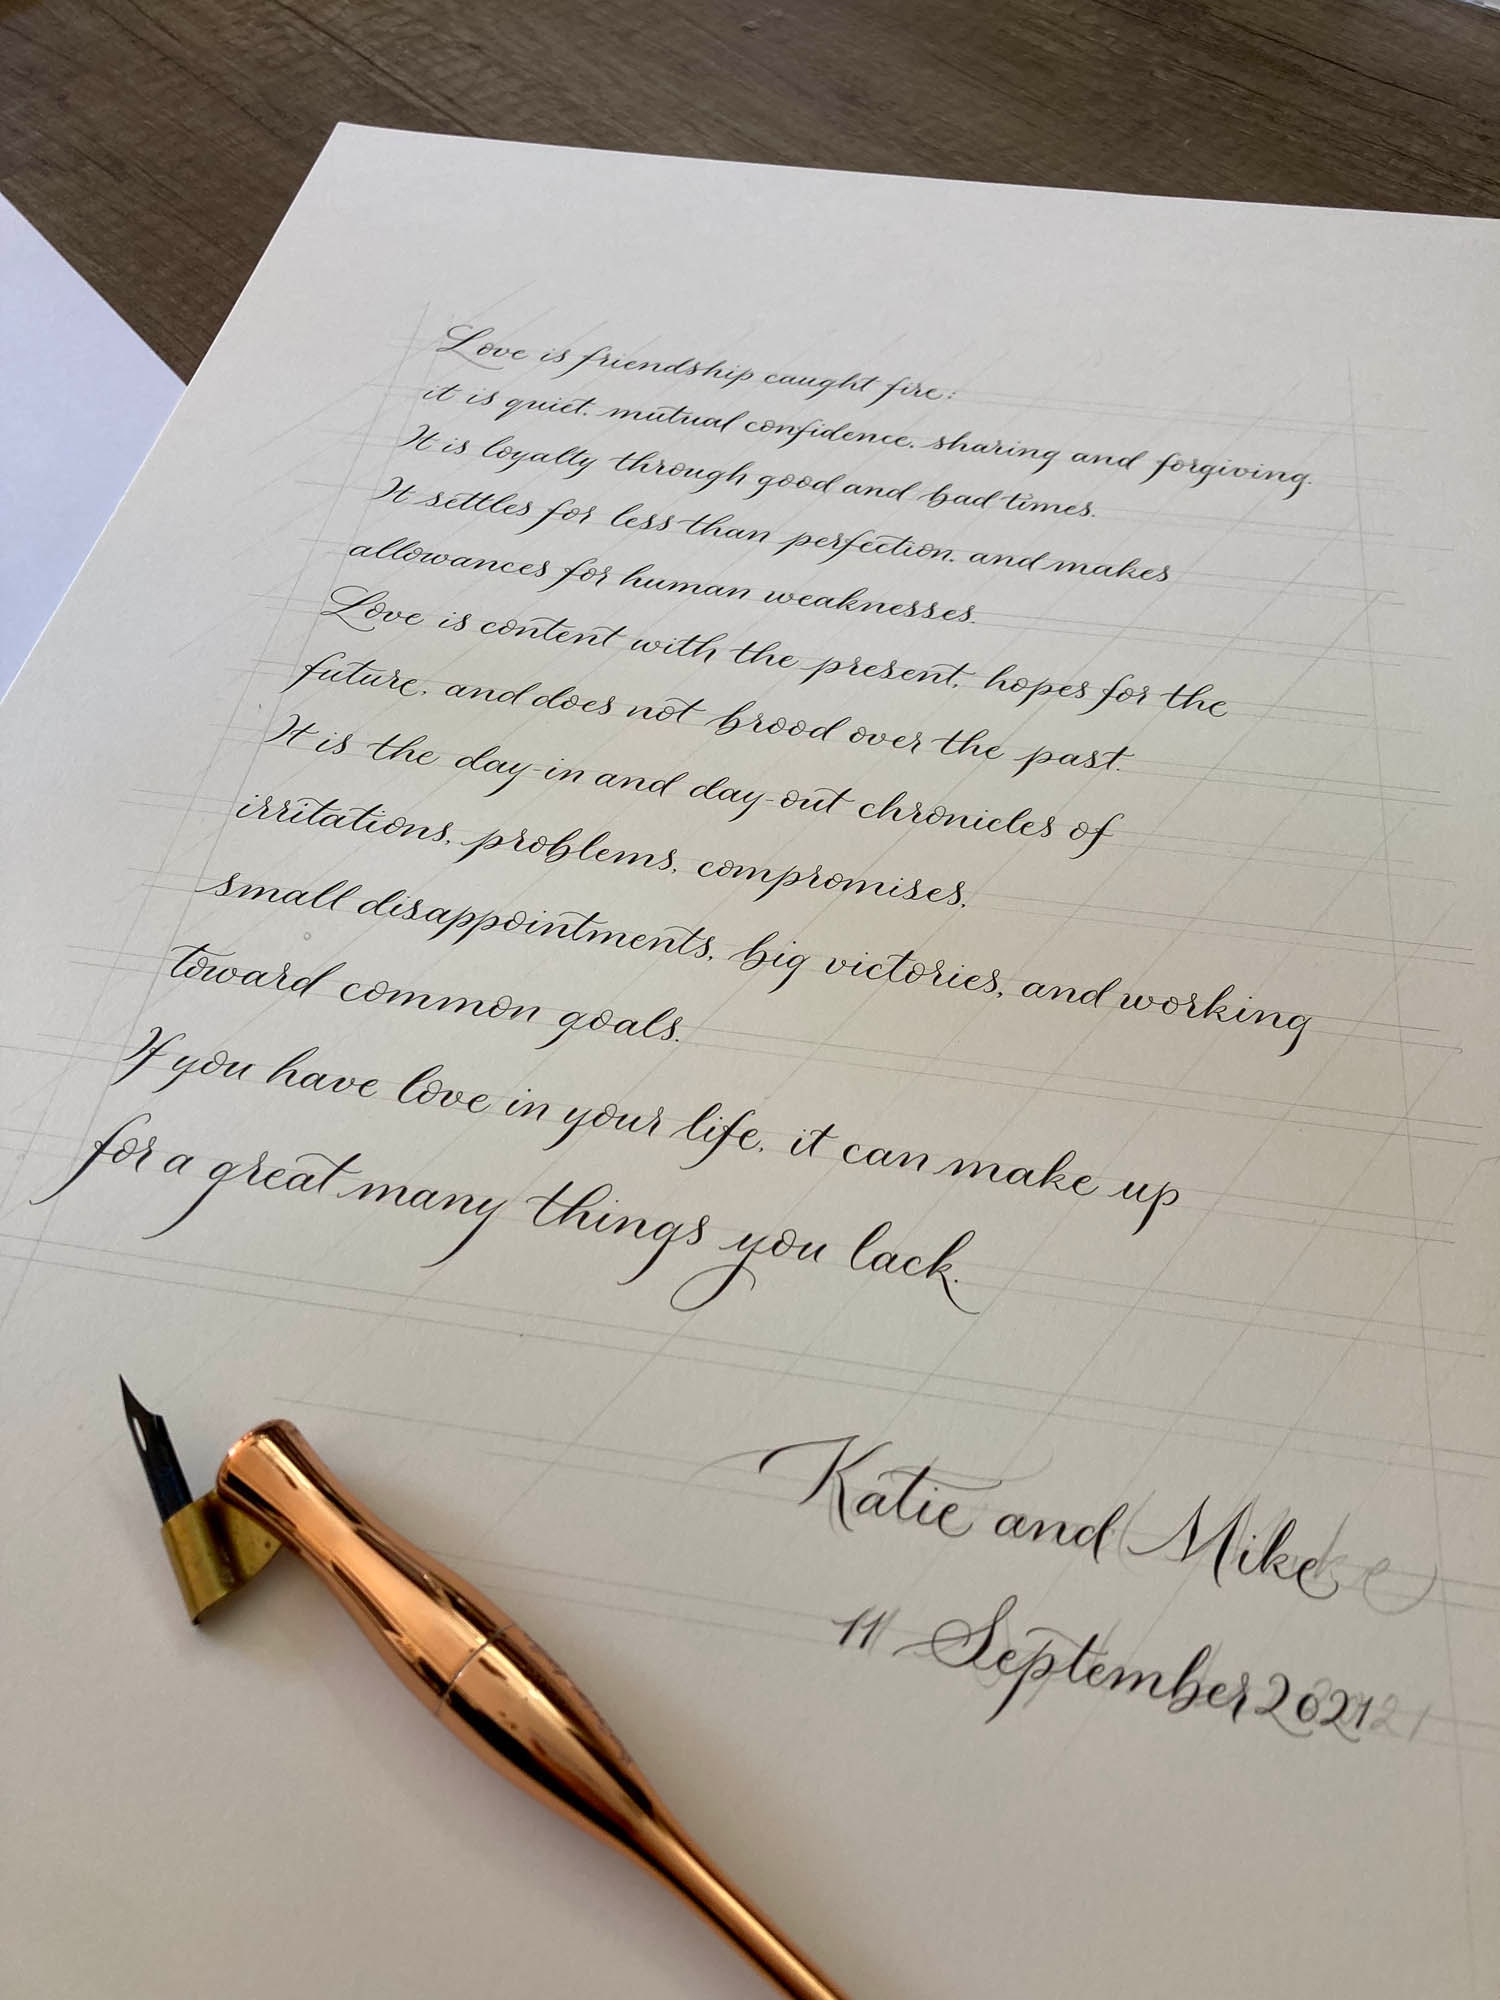 Love is friendship caught fire:
it is quiet, mutual confidence, sharing and forgiving.
It is loyalty through good and bad times.
It settles for less than perfection, and makes
allowances for human weaknesses.
Love is content with the present, hopes for the
future, and does not brood over the past.
It is the day-in and day-out chronicles of
irritations, problems, compromises,
small disappointments, big victories, and working
toward common goals.
If you have love in your life, it can make up
for a great many things you lack.
Katie and Mike
11 September 2021